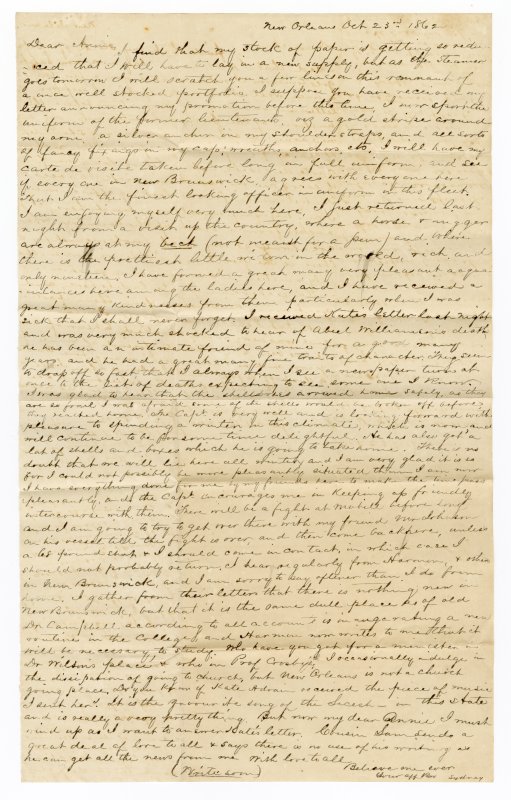 New Orleans Oct 23rd 1862
Dear Annie,
I find that my stock of paper is getting so redu-
-ced that I will have to lay in a new supply, but as the Steamer
goes tomorrow I will scratch you a few lines on this remnant of
a once well stocked portfolio. I suppose you have received my
letter announcing my promotion before this time, I now sport the
uniform of the former lieutenants, viz a gold stripe around
my arm a silver anchor on my shoulder straps, and all sorts
of fancy fixings on my cap, wreaths, anchors, etc, I will have my
carte de visite taken before long, in full uniform, and see
if every one in New Brunswick agrees with every one here
that I am the finest looking officer in uniform in this fleet.
I am enjoying myself very much here, I just returned last
night from a visit up the country, where a horse & nigger
are always at my beck (not meant for a pun) and where
there is the prettiest little in the world, rich, and
only nineteen. I have formed a great many very pleasant acqua-
-intances here among the ladies here, and I have received a
great many kindnesses from them particularly when I was
sick that I shall never forget. I received Kate's letter last night
and was very much shocked to hear of Abel Williamson's death
as he was a intimate friend of mine for a good many
years, and he had a great many fine traits of character. They seem
to drop off so fast that I always when I see a newspaper turn at
once to the list of deaths expecting to see some one I know.
I was glad to hear that the shells has arrived home safely, as they
are so I was afraid some of
they reached home. The Capt. is very well and is looking forward with
pleasure to spending a winter in this climate, which is now and
will continue to be for some time delightful. He has also got a
lot of shells and boxes which he is going to take home. There is no
doubt that we will lie here all winter, and I am very glad it is so
for I could not possibly be more pleasantly situated than I am now
I have everything done for me by my friends here to make the time pass
pleasantly, and the Capt. encourages me in keeping up friendly
intercourse with them. There will be a fight at Mobile before long
and I am going to try to get over there with my friend
on his vessel till the fight is over, and then come back here, unless
a 68 pound shot & I should come in contact, in which case I
should not probably return. I hear regularly from Harmon, & others
in New Brunswick, and I am sorry to say oftener than I do from
home. I gather from their letters that there is nothing new in
New Brunswick, but that it is the same dull place as of old
Dr. Campbell according to all accounts is inaugurating a new
routine in the College, and Harmon now writes to me that it
will be necessary to study. Who have you got for a minister in
Dr. Wilson's place, & who in Prof Crosby's, I occasionally indulge in
the dissipation of going to church, but New Orleans is not a church
going place. Do you know if Kate received the piece of music
I sent her. It is the favourite song of the Secesh in this State
and is really a very pretty thing. But now my dear Annie I must
wind up as I want to answer Kate's letter. Cousin Sam sends a
great deal of love to all & says there is no use of his writing as
he can get all the news from me. With love to all
(Write soon)
Believe me ever
Your aff Bro Sydney